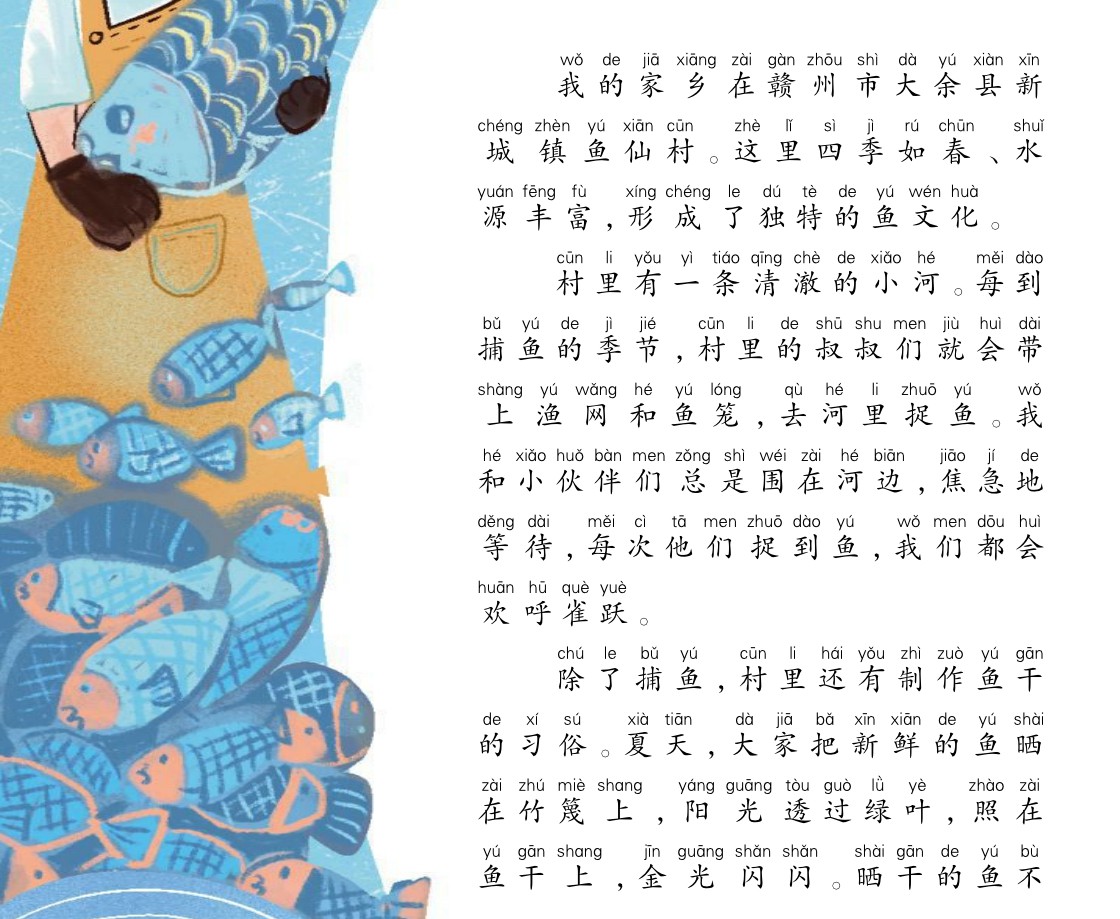 wǒ de jiā xiāng zài gàn zhōu shì dà yú xiàn xīn
我的家乡在赣州市大余县新
chéng zhèn yú xiān cūn zhè lǐ sì jì rú chūn shuǐ
城镇鱼仙村。这里四季如春、水
yuán fēng fù xíng chéng le dú tè de yú wén huà
源丰富,形成了独特的鱼文化。
cūn li yǒu yì tiáo qīng chè de xiǎo hé měi dào
村里有一条清澈的小河。每到
bǔ yú de jì jié cūn li de shū shu men jiù huì dài
捕鱼的季节,村里的叔叔们就会带
shàng yú wǎng hé yú lóng qù hé li zhuō yú wǒ
上渔网和鱼笼,去河里捉鱼。我
hé xiǎo huǒ bàn men zǒng shì wéi zài hé biān jiāo jí de
和小伙伴们总是围在河边,焦急地
děng dài měi cì tā men zhuō dào yú wǒ men dōu huì
等待,每次他们捉到鱼,我们都会
huān hū què yuè
欢呼雀跃。
chú le bǔ yú cūn li hái yǒu zhì zuò yú gān
除了捕鱼,村里还有制作鱼干
de xí sú xià tiān dà jiā bǎ xīn xiān de yú shài
的习俗。夏天,大家把新鲜的鱼晒
zài zhú miè shang yáng guāng tòu guò lǜ yè zhào zài
在竹篾上,阳光透过绿叶,照在
yú gān shang jīn guāng shǎn shǎn shài gān de yú bù
鱼干上,金光闪闪。晒干的鱼不